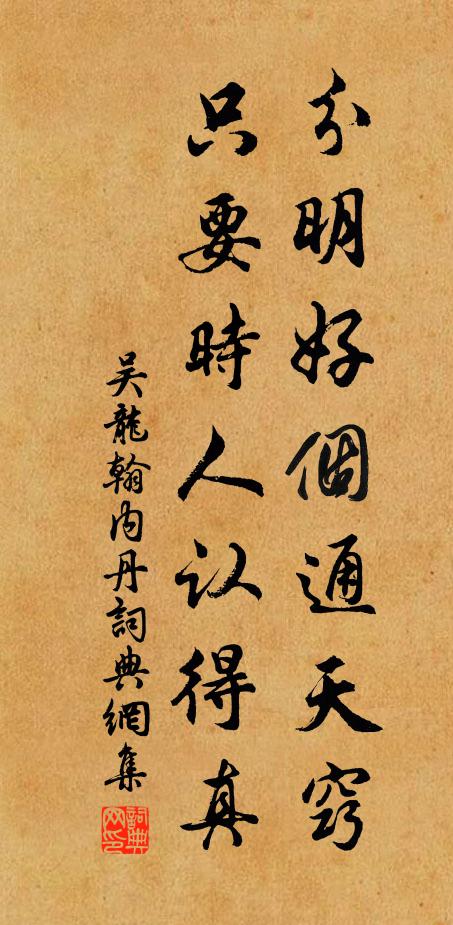 分明好個通天竅
只要時人认得真
吴龍翰内丹詞典網集
詞典网印